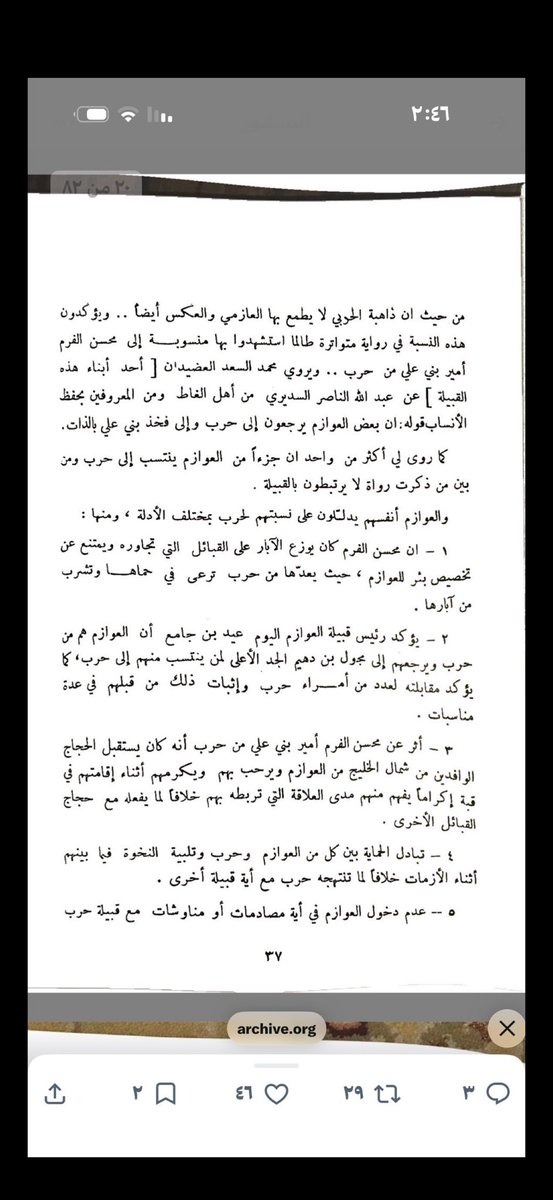 ٢:٤٦
٢٠ من ٨٢
من حيث ان ذاهبة الحربي لا يطمع بها العازمي والعكس أيضاً .. ويؤكدون
هذه النسبة في رواية متواترة طالما استشهدوا بها منسوبة إلى محسن الفرم
أمير بني علي من حرب .. ويروي محمد السعد العضيدان [ أحد أبناء هذه
القبيلة ] عن عبد الله الناصر السديري من أهل الغاط ومن المعروفين بحفظ
الأنساب قوله : ان بعض العوازم يرجعون إلى حرب وإلى فخذ بني علي بالذات.
كما روى لي أكثر من واحد ان جزءاً من العوازم ينتسب إلى حرب ومن
بين من ذكرت رواة لا يرتبطون بالقبيلة .
والعوازم أنفسهم يدلّلون على نسبتهم لحرب بمختلف الأدلة ، ومنها :
١ – ان محسن الفرم كان يوزع الآبار على القبائل التي تجاوره ويمتنع عن
تخصيص بئر للعوازم ، حيث يعدّها من حرب ترعى في حماها وتشرب
من آبارها .
٢ – يؤكد رئيس قبيلة العوازم اليوم عيد بن جامع أن العوازم هم من
حرب ويرجعهم إلى مجول بن دهيم الجد الأعلى لمن ينتسب منهم إلى حرب، كما
يؤكد مقابلته لعدد من أمراء حرب وإثبات ذلك من قبلهم في عدة
مناسبات .
٣ – أثر عن محسن الفرم أمير بني علي من حرب أنه كان يستقبل الحجاج
الوافدين من شمال الخليج من العوازم ويرحب بهم ويكرمهم أثناء إقامتهم في
قبة إكراماً يفهم منهم مدى العلاقة التي تربطه بهم خلافاً لما يفعله مع حجاج
القبائل الأخرى .
٤ – تبادل الحماية بين كل من العوازم وحرب وتلبية النخوة فيما بينهم
أثناء الأزمات خلافاً لما تنتهجه حرب مع أية قبيلة أخرى .
٥ – عدم دخول العوازم في أية مصادمات أو مناوشات مع قبيلة حرب
٣٧
archive.org
٣ ٢٩ ٤٦ ٢